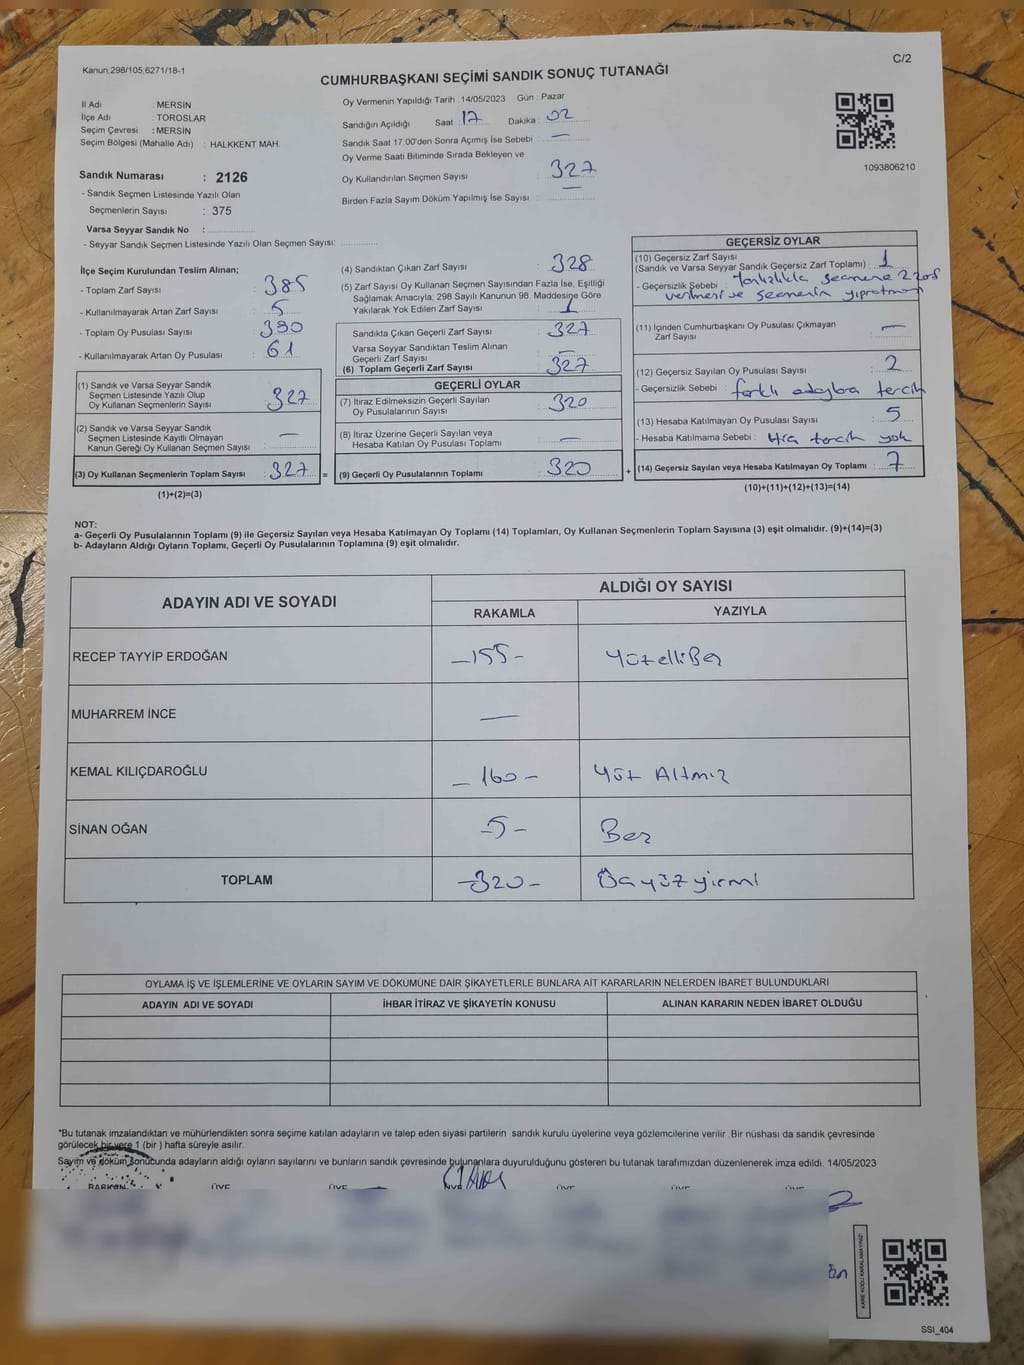 Kanun;298/105;6271/18-1
C/2
CUMHURBAŞKANI SEÇİMİ SANDIK SONUÇ TUTANAĞI
İl Adı : MERSİN
İlçe Adı : TOROSLAR
Seçim Çevresi : MERSİN
Seçim Bölgesi (Mahalle Adı) : HALKKENT MAH.
Sandık Numarası : 2126
- Sandık Seçmen Listesinde Yazılı Olan
Seçmenlerin Sayısı : 375
Varsa Seyyar Sandık No : ................
- Seyyar Sandık Seçmen Listesinde Yazılı Olan Seçmen Sayısı: ............
Oy Vermenin Yapıldığı Tarih : 14/05/2023 Gün : Pazar
Sandığın Açıldığı Saat : 17 Dakika : 02
Sandık Saat 17:00'den Sonra Açımış İse Sebebi : —
Oy Verme Saati Bitiminde Sırada Bekleyen ve
Oy Kullandırılan Seçmen Sayısı : 327
Birden Fazla Sayım Döküm Yapılmış İse Sayısı : —
1093806210
İlçe Seçim Kurulundan Teslim Alınan;
- Toplam Zarf Sayısı : 385
- Kullanılmayarak Artan Zarf Sayısı : 5
- Toplam Oy Pusulası Sayısı : 390
- Kullanılmayarak Artan Oy Pusulası : 61
(1) Sandık ve Varsa Seyyar Sandık
Seçmen Listesinde Yazılı Olup
Oy Kullanan Seçmenlerin Sayısı : 327
(2) Sandık ve Varsa Seyyar Sandık
Seçmen Listesinde Kayıtlı Olmayan
Kanun Gereği Oy Kullanan Seçmen Sayısı : —
(3) Oy Kullanan Seçmenlerin Toplam Sayısı : 327 =
(1)+(2)=(3)
(4) Sandıktan Çıkan Zarf Sayısı : 328
(5) Zarf Sayısı Oy Kullanan Seçmen Sayısından Fazla İse, Eşitliği
Sağlamak Amacıyla, 298 Sayılı Kanunun 98. Maddesine Göre
Yakılarak Yok Edilen Zarf Sayısı : 1
Sandıkta Çıkan Geçerli Zarf Sayısı : 327
Varsa Seyyar Sandıktan Teslim Alınan
Geçerli Zarf Sayısı : —
(6) Toplam Geçerli Zarf Sayısı : 327
GEÇERLİ OYLAR
(7) İtiraz Edilmeksizin Geçerli Sayılan
Oy Pusulalarının Sayısı : 320
(8) İtiraz Üzerine Geçerli Sayılan veya
Hesaba Katılan Oy Pusulası Toplamı : —
(9) Geçerli Oy Pusulalarının Toplamı : 320 +
GEÇERSİZ OYLAR
(10) Geçersiz Zarf Sayısı
(Sandık ve Varsa Seyyar Sandık Geçersiz Zarf Toplamı) : 1
- Geçersizlik Sebebi : Yanlışlıkla seçmene 2 zarf
verilmesi ve seçmenin
(11) İçinden Cumhurbaşkanı Oy Pusulası Çıkmayan
Zarf Sayısı : —
(12) Geçersiz Sayılan Oy Pusulası Sayısı : 2
- Geçersizlik Sebebi : farklı adaylara tercih
(13) Hesaba Katılmayan Oy Pusulası Sayısı : 5
- Hesaba Katılmama Sebebi : Hiç tercih yok
(14) Geçersiz Sayılan veya Hesaba Katılmayan Oy Toplamı : 7
(10)+(11)+(12)+(13)=(14)
NOT:
a- Geçerli Oy Pusulalarının Toplamı (9) ile Geçersiz Sayılan veya Hesaba Katılmayan Oy Toplamı (14) Toplamları, Oy Kullanan Seçmenlerin Toplam Sayısına (3) eşit olmalıdır. (9)+(14)=(3)
b- Adayların Aldığı Oyların Toplamı, Geçerli Oy Pusulalarının Toplamına (9) eşit olmalıdır.
ADAYIN ADI VE SOYADI
ALDIĞI OY SAYISI
RAKAMLA YAZIYLA
RECEP TAYYİP ERDOĞAN -155- YüzelliBeş
MUHARREM İNCE —
KEMAL KILIÇDAROĞLU -160- Yüz Altmız
SİNAN OĞAN -5- Beş
TOPLAM -320- Üçyüzyirmi
OYLAMA İŞ VE İŞLEMLERİNE VE OYLARIN SAYIM VE DÖKÜMÜNE DAİR ŞİKAYETLERLE BUNLARA AİT KARARLARIN NELERDEN İBARET BULUNDUKLARI
ADAYIN ADI VE SOYADI İHBAR İTİRAZ VE ŞİKAYETİN KONUSU ALINAN KARARIN NEDEN İBARET OLDUĞU
*Bu tutanak imzalandıktan ve mühürlendikten sonra seçime katılan adayların ve talep eden siyasi partilerin sandık kurulu üyelerine veya gözlemcilerine verilir .Bir nüshası da sandık çevresinde
görülecek bir yere 1 (bir ) hafta süreyle asılır.
Sayım ve döküm sonucunda adayların aldığı oyların sayılarını ve bunların sandık çevresinde bulunanlara duyurulduğunu gösteren bu tutanak tarafımızdan düzenlenerek imza edildi. 14/05/2023
BAŞKAN ÜYE ÜYE ÜYE ÜYE ÜYE ÜYE
KARE KODU KARALAMAYINIZ!
SSI_404